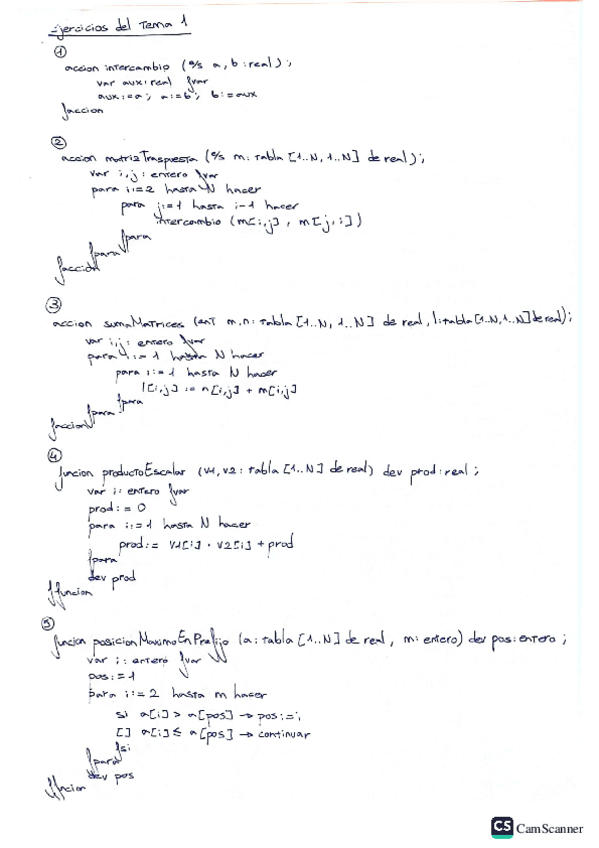 Ejercicios del Tema 1
1
accion intercambio (e/s a, b : real) ;
var aux : real fvar
aux := a ; a := b ; b := aux
faccion
2
accion matrizTraspuesta (e/s m : tabla [1..N, 1..N] de real) ;
var i, j : entero fvar
para i := 2 hasta N hacer
para j := 1 hasta i-1 hacer
intercambio (m[i,j] , m[j,i])
fpara
fpara
faccion
3
accion sumaMatrices (ent m, n : tabla [1..N, 1..N] de real, l : tabla [1..N, 1..N] de real) ;
var i, j : entero fvar
para i := 1 hasta N hacer
para i := 1 hasta N hacer
l[i,j] := n[i,j] + m[i,j]
fpara
fpara
faccion
4
funcion productoEscalar (v1, v2 : tabla [1..N] de real) dev prod : real ;
var i : entero fvar
prod := 0
para i := 1 hasta N hacer
prod := v1[i] · v2[i] + prod
fpara
dev prod
ffuncion
5
funcion posicionMaximoEnPrefijo (a : tabla [1..N] de real, m : entero) dev pos : entero ;
var i : entero fvar
pos := 1
para i := 2 hasta m hacer
si a[i] > a[pos] → pos := i
[] a[i] ≤ a[pos] → continuar
fsi
fpara
dev pos
ffncion
CS CamScanner